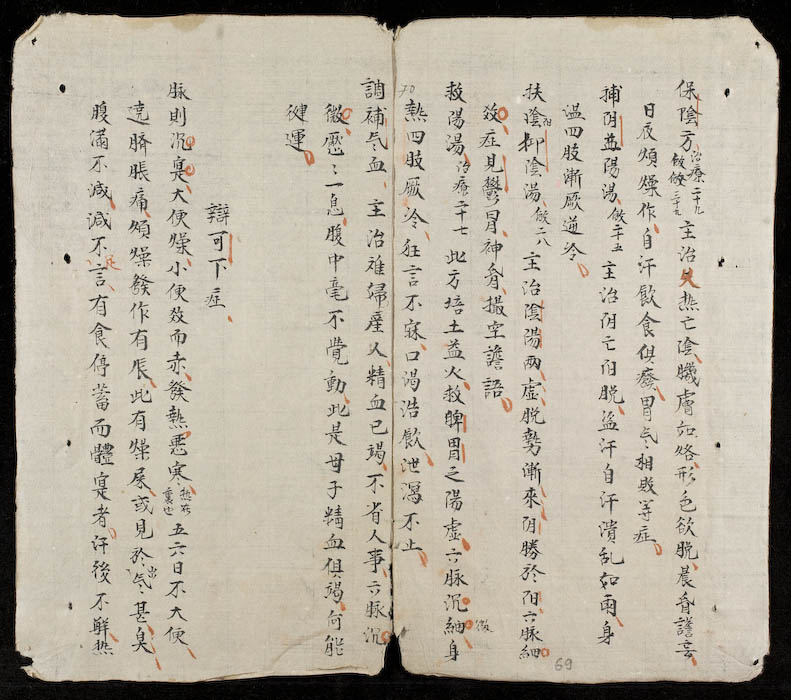 保陰方治療二十九倣倣三十五主治失热亡陰臟膚如烙形色欲脱晨昏譫妄
日夜煩燥作自汗飲食俱廢胃气相敗等症
補阴益陽湯倣二十五主治阴亡阳脱盗汗自汗潰乱如雨身
温四肢漸厥逆冷
扶陰抑陰湯倣二八主治陰陽兩虛脱勢漸來阴勝於阳六脉細
效症見鬱冒神昏撮空譫語
救陽湯治療二十七此方培土益火救脾胃之陽虛六脉沉細微身
热四肢厥冷狂言不寐口渴浩飲泄瀉不止
調補气血主治难婦產人精血已竭不省人事六脉沉
微壓壓一息腹中毫不覺動此是母子精血俱竭何能
健運
辯可下症
脉則沉寔大便燥小便效而赤發熱悪寒热在裏也五六日不大便
遶臍脹痛煩燥發作有辰此有燥屎或見於出气甚臭
腹滿不减减不足言有食停蓄而體寔者汗後不解热
69